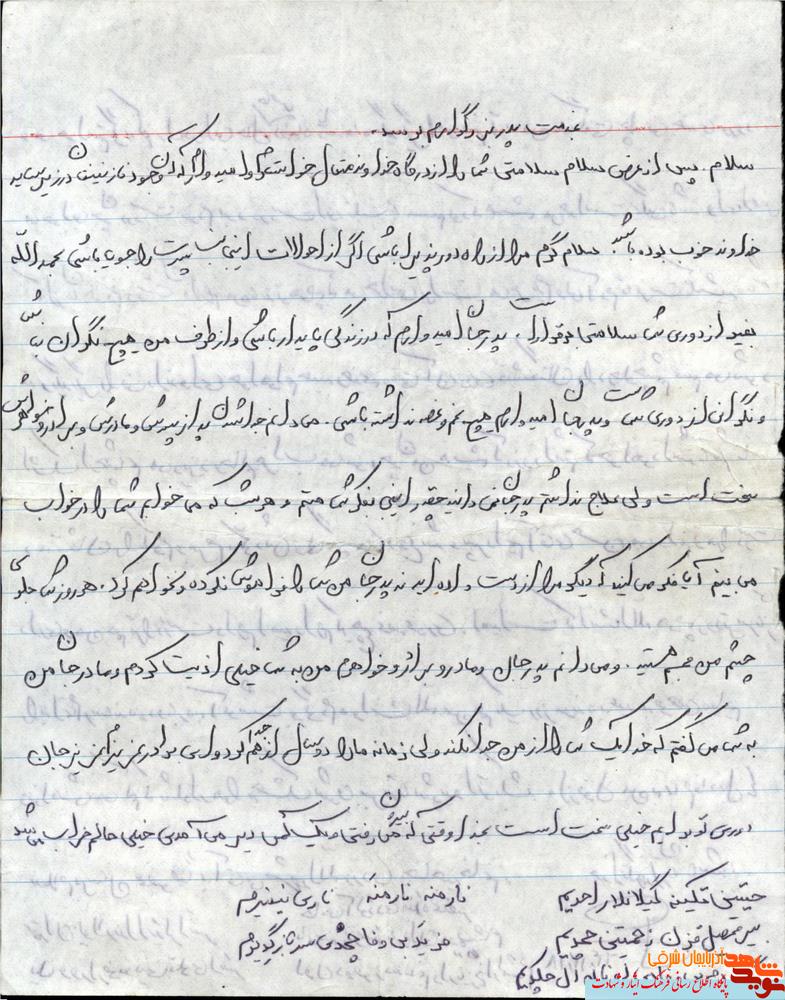 خدمت پدر بزرگوارم برسد.
سلام. پس از عرض سلام سلامتی شما را از درگاه خداوند متعال خواستارم و امیدوارم که آن وجود نازنینتان در زیر سایه
خداوند خوب بوده باشد. سلام گرم مرا از راه دور پذیرا باشی اگر از احوالات اینجانب پسرت را جویا باشی بحمدالله
بغیر از دوری شما سلامتی برقرار است. پدر جان امیدوارم که در زندگی پایدار باشی و از طرف من هیچ نگران نباشی
و نگرانی از دوری شماست و پدر جان امیدوارم هیچ غم و غصه نداشته باشی. می دانم جدا شدن پسر از پدرش و مادرش و برادر و خواهرش
سخت است ولی علاج نداشتم پدر جان نمی دانید چقدر اینجا بفکر شما هستم و هر شب که می خوابم شما را در خواب
می بینم آیا فکر می کنید که دیگر مرا از دست داده اید نه پدر جان من شما را فراموش نکرده و نخواهم کرد. هر روز شما جلوی
چشم من مجسم هستید. و می دانم پدر جان و مادر و برادر و خواهرم من به شما خیلی اذیت کردم و مادر جان من
به شما می گفتم که خدا یک شما را از من جدا نکند ولی زمانه ما را دو سال از هم جدا کرد و ای برادر عزیزم عزیز جان
دوری تو برایم خیلی سخت است بخدا وقتی که بیرون می رفتی و یک کمی دیر می آمدی خیلی حالم خراب می شد
گیلانلار احدیم
نارمنه نارمنه
زحمتینی چکدیم
آذربایجان شرقی
نوید شاهد
پایگاه اطلاع رسانی فرهنگ ایثار و شهادت